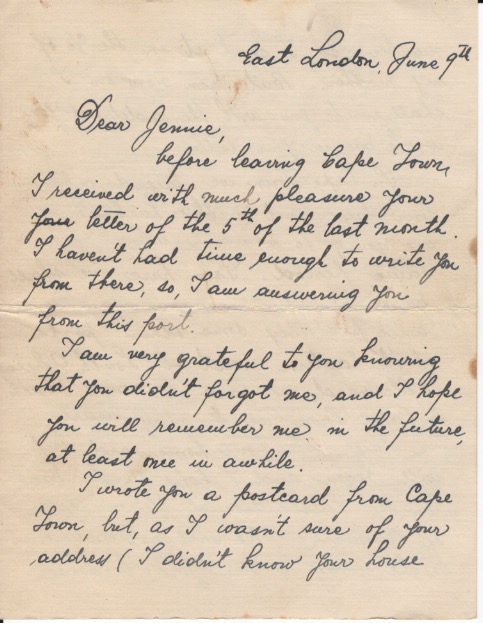 East London, June 9th
Dear Jennie,
before leaving Cape Town,
I received with much pleasure your
your letter of the 5th of the last month.
I haven't had time enough to write you
from there, so, I am answering you
from this port.
I am very grateful to you knowing
that you didn't forgot me, and I hope
you will remember me in the future,
at least one in awhile.
I wrote you a postcard from Cape
Town, but, as I wasn't sure of your
address ( I didn't know your house